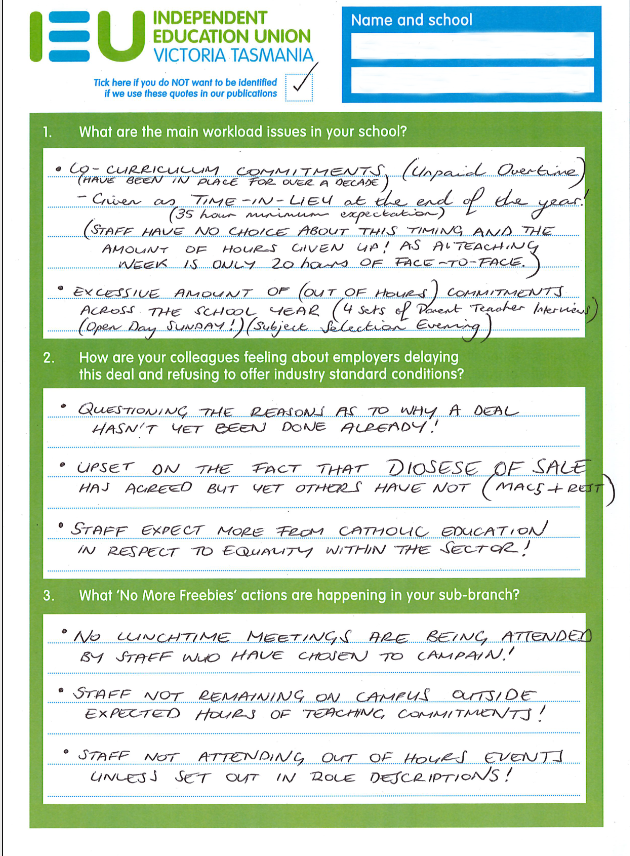 IEU INDEPENDENT
EDUCATION UNION
VICTORIA TASMANIA
Tick here if you do NOT want to be identified
if we use these quotes in our publications
Name and school
1. What are the main workload issues in your school?
• CO-CURRICULUM COMMITMENTS (Unpaid Overtime)
(HAVE BEEN IN PLACE FOR OVER A DECADE)
- Given as TIME-IN-LIEU at the end of the year!
(35 hour minimum expectation)
(STAFF HAVE NO CHOICE ABOUT THIS TIMING AND THE
AMOUNT OF HOURS GIVEN UP! AS A TEACHING
WEEK IS ONLY 20 hours OF FACE-TO-FACE.)
• EXCESSIVE AMOUNT OF (OUT OF HOURS) COMMITMENTS
ACROSS THE SCHOOL YEAR (4 sets of Parent Teacher Interviews)
(Open Day SUNDAY!) (Subject Selection Evening)
2. How are your colleagues feeling about employers delaying
this deal and refusing to offer industry standard conditions?
• QUESTIONING THE REASONS AS TO WHY A DEAL
HASN'T YET BEEN DONE ALREADY!
• UPSET ON THE FACT THAT DIOSESE OF SALE
HAS AGREED BUT YET OTHERS HAVE NOT (MACS + REST)
• STAFF EXPECT MORE FROM CATHOLIC EDUCATION
IN RESPECT TO EQUALITY WITHIN THE SECTOR!
3. What 'No More Freebies' actions are happening in your sub-branch?
• NO LUNCHTIME MEETINGS ARE BEING ATTENDED
BY STAFF WHO HAVE CHOSEN TO CAMPAIN!
• STAFF NOT REMAINING ON CAMPUS OUTSIDE
EXPECTED HOURS OF TEACHING COMMITMENTS!
• STAFF NOT ATTENDING OUT OF HOURS EVENTS
UNLESS SET OUT IN ROLE DESCRIPTIONS!